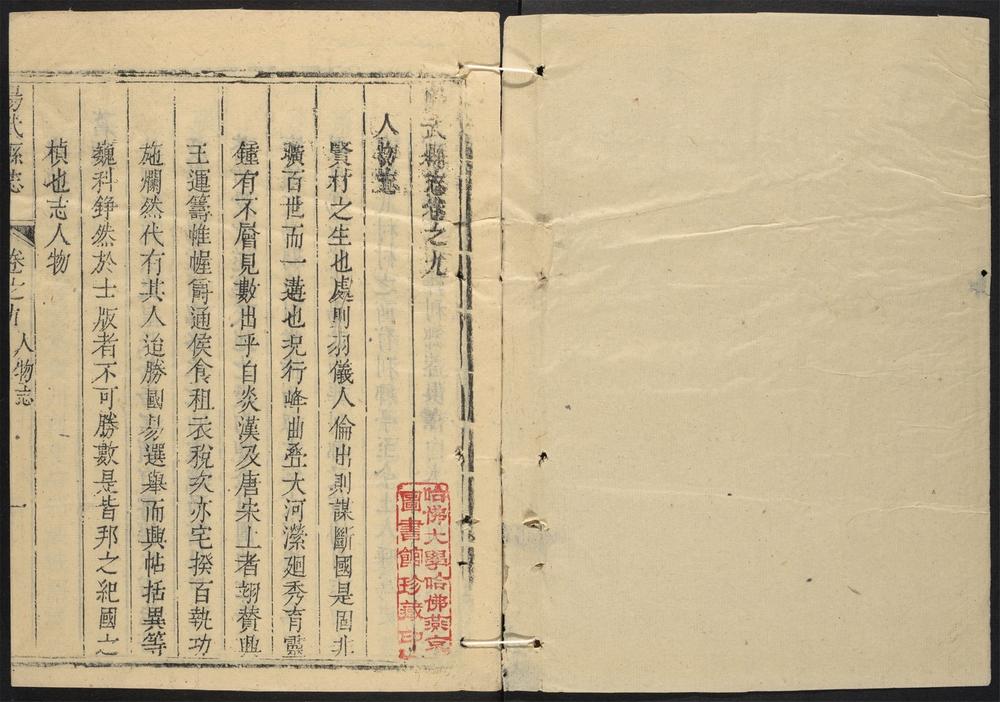 武縣志卷之九
人物志
賢材之生也處則羽儀人倫出則謀斷國是固非
曠百世而一遘也況行峰曲疊大河瀠廻秀育靈
鍾有不層見數出乎自炎漢及唐宋上者翊贊興
王運籌帷幄爵通侯食租衣稅次亦宅揆百執功
施爛然代有其人迨勝國易選舉而興帖括異等
巍科錚然於士版者不可勝數是皆邦之紀國之
楨也志人物
陽武縣志
卷之九 人物志
一
哈佛大學哈佛燕京
圖書館珍藏印